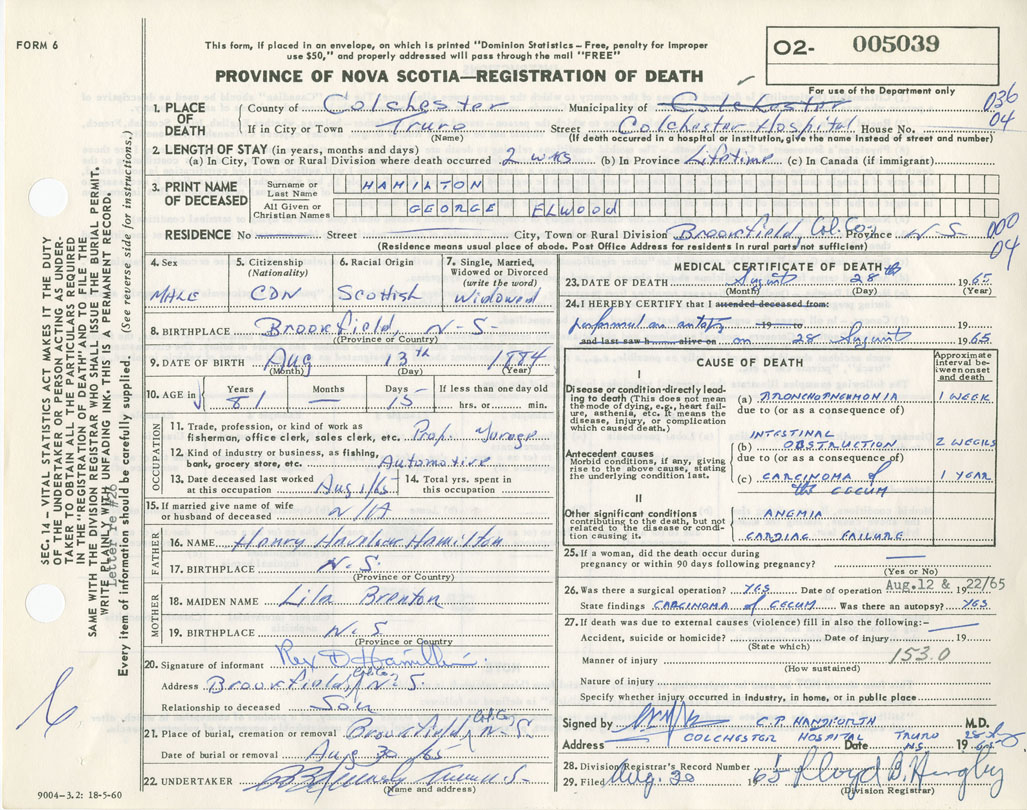 FORM 6
This form, if placed in an envelope, on which is printed "Dominion Statistics – Free, penalty for improper
use $50," and properly addressed will pass through the mail "FREE"
PROVINCE OF NOVA SCOTIA—REGISTRATION OF DEATH
O2- 005039
For use of the Department only
036
04
1. PLACE OF DEATH
County of Colchester Municipality of Colchester
If in City or Town Truro Street Colchester Hospital House No.
(Name) (If death occurred in a hospital or institution, give the name instead of street and number)
2. LENGTH OF STAY (in years, months and days)
(a) In City, Town or Rural Division where death occurred 2 wks (b) In Province Lifetime (c) In Canada (if immigrant)
3. PRINT NAME OF DECEASED
Surname or Last Name HAMILTON
All Given or Christian Names GEORGE ELWOOD
RESIDENCE No Street City, Town or Rural Division Brookfield, Col. Co. Province N-S
000
04
(Residence means usual place of abode. Post Office Address for residents in rural parts not sufficient)
4. Sex MALE
5. Citizenship (Nationality) CDN
6. Racial Origin Scottish
7. Single, Married, Widowed or Divorced (write the word) Widowed
8. BIRTHPLACE Brookfield, N-S-
(Province or Country)
9. DATE OF BIRTH Aug 13th 1884
(Month) (Day) (Year)
10. AGE in Years 81 Months — Days 15 If less than one day old
hrs. or min.
OCCUPATION
11. Trade, profession, or kind of work as
fisherman, office clerk, sales clerk, etc. Prop.
12. Kind of industry or business, as fishing,
bank, grocery store, etc. Automotive
13. Date deceased last worked at this occupation Aug 1/65
14. Total yrs. spent in this occupation
15. If married give name of wife
or husband of deceased N/A
FATHER
16. NAME Henry Havelock Hamilton
17. BIRTHPLACE N.S.
(Province or Country)
MOTHER
18. MAIDEN NAME Lila Brenton
19. BIRTHPLACE N.S
(Province or Country)
20. Signature of informant Rex D Hamilton
Address Brookfield, Col. Co. N-S.
Relationship to deceased Son
21. Place of burial, cremation or removal Brookfield, Col. Co. N-S
Date of burial or removal Aug 30/65
22. UNDERTAKER
(Name and address)
MEDICAL CERTIFICATE OF DEATH
23. DATE OF DEATH August 28th 1965
(Month) (Day) (Year)
24. I HEREBY CERTIFY that I attended deceased from:
performed an autopsy 19 to 19
and last saw h alive on on 28 August 1965
CAUSE OF DEATH
Approximate interval between onset and death
I
Disease or condition directly leading to death (This does not mean the mode of dying, e.g., heart failure, asthenia, etc. It means the disease, injury, or complication which caused death.)
(a) BRONCHOPNEUMONIA 1 WEEK
due to (or as a consequence of)
Antecedent causes
Morbid conditions, if any, giving rise to the above cause, stating the underlying condition last.
(b) INTESTINAL OBSTRUCTION 2 WEEKS
due to (or as a consequence of)
(c) CARCINOMA of the CECUM 1 YEAR
II
Other significant conditions
contributing to the death, but not related to the disease or condition causing it.
ANEMIA
CARDIAC FAILURE
25. If a woman, did the death occur during
pregnancy or within 90 days following pregnancy? —
(Yes or No)
26. Was there a surgical operation? YES Date of operation Aug.12 & 22/65 19
State findings CARCINOMA of CECUM Was there an autopsy? YES
27. If death was due to external causes (violence) fill in also the following:–
Accident, suicide or homicide? Date of injury 19
(State which)
Manner of injury 153.0
(How sustained)
Nature of injury
Specify whether injury occurred in industry, in home, or in public place
Signed by C.P. HANDFORTH M.D.
Address COLCHESTER HOSPITAL TRURO NS. Date 28 1965
28. Division Registrar's Record Number
29. Filed Aug. 30 1965 Lloyd B.
(Division Registrar)
SEC. 14 – VITAL STATISTICS ACT MAKES IT THE DUTY
OF THE UNDERTAKER OR PERSON ACTING AS UNDER-
TAKER TO OBTAIN THE PARTICULARS REQUIRED
IN THE "REGISTRATION OF DEATH" AND TO FILE THE
SAME WITH THE DIVISION REGISTRAR WHO SHALL ISSUE THE BURIAL PERMIT.
WRITE PLAINLY WITH UNFADING INK. THIS IS A PERMANENT RECORD.
Letter re #26
Every item of information should be carefully supplied. (See reverse side for instructions.)
9004-3.2: 18-5-60